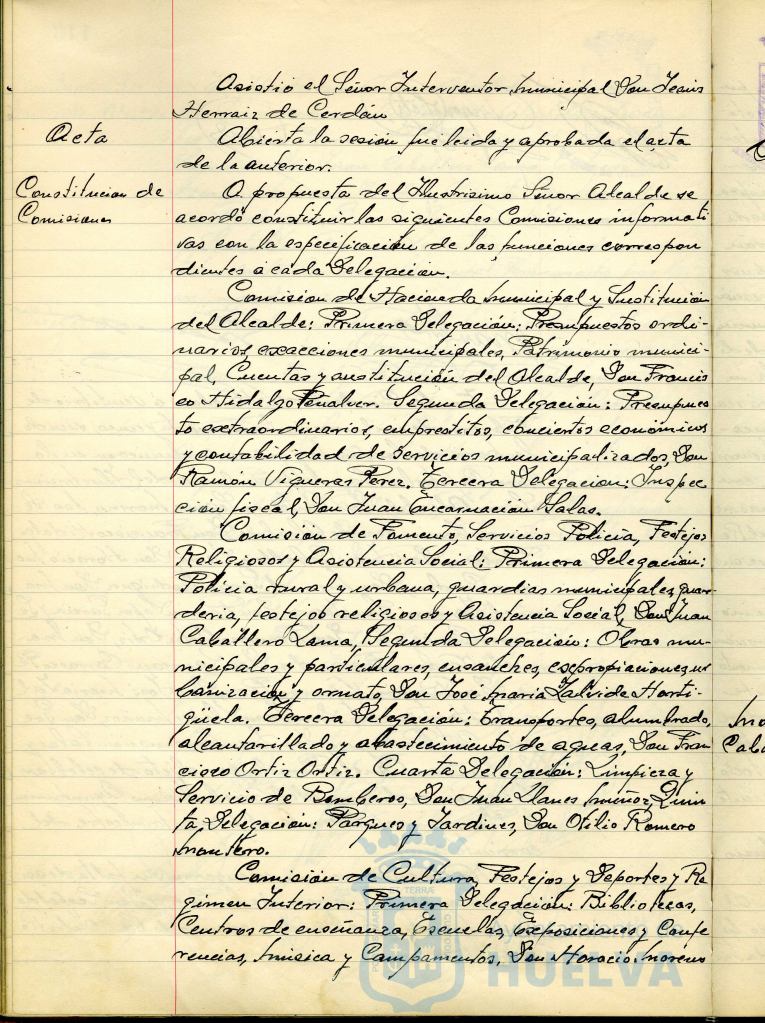 Asistió el Señor Interventor Municipal Don Jesús
Herraiz de Cerdán
Acta
Abierta la sesión fue leida y aprobada el acta
de la anterior.
Constitucion de
Comisiones
A propuesta del Ilustrisimo Señor Alcalde se
acordó constituir las siguientes Comisiones informati
vas con la especificación de las funciones correspon
dientes a cada Delegación.
Comisión de Hacienda Municipal y Sustitución
del Alcalde: Primera Delegación: Presupuestos ordi-
narios, exacciones municipales, Patrimonio munici-
pal, Cuentas y sustitución del Alcalde, Don Francis
co Hidalgo Peñalver. Segunda Delegación: Presupues
to extraordinarios, emprestitos, conciertos económicos
y contabilidad de servicios municipalizados, Don
Ramón Vigueras Perez. Tercera Delegacion: Inspec
ción fiscal, Don Juan Encarnación Salas.
Comisión de Fomento, Servicios Policía, Festejos
Religiosos y Asistencia Social: Primera Delegación:
Policia rural y urbana, guardias municipales, guar-
deria, festejos religiosos y Asistencia Social, Don Juan
Caballero Lama, Segunda Delegación: Obras mu-
nicipales y particulares, ensanches, expropiaciones, ur
banización y ornato, Don José María Zalvide Horti-
güela. Tercera Delegación: Transportes, alumbrado,
alcantarillado y abastecimiento de aguas, Don Fran
cisco Ortiz Ortiz. Cuarta Delegación: Limpieza y
Servicio de Bomberos, Don Juan Llanes Muñoz, Quin
ta Delegación: Parques y Jardines, Don Otilio Romero
Mantero.
Comisión de Cultura, Festejos y Deportes y Re
gimen Interior: Primera Delegación: Bibliotecas,
Centros de enseñanza, Escuelas, Exposiciones y Confe
rencias, Música y Campamentos, Don Horacio Moreno
HUELVA